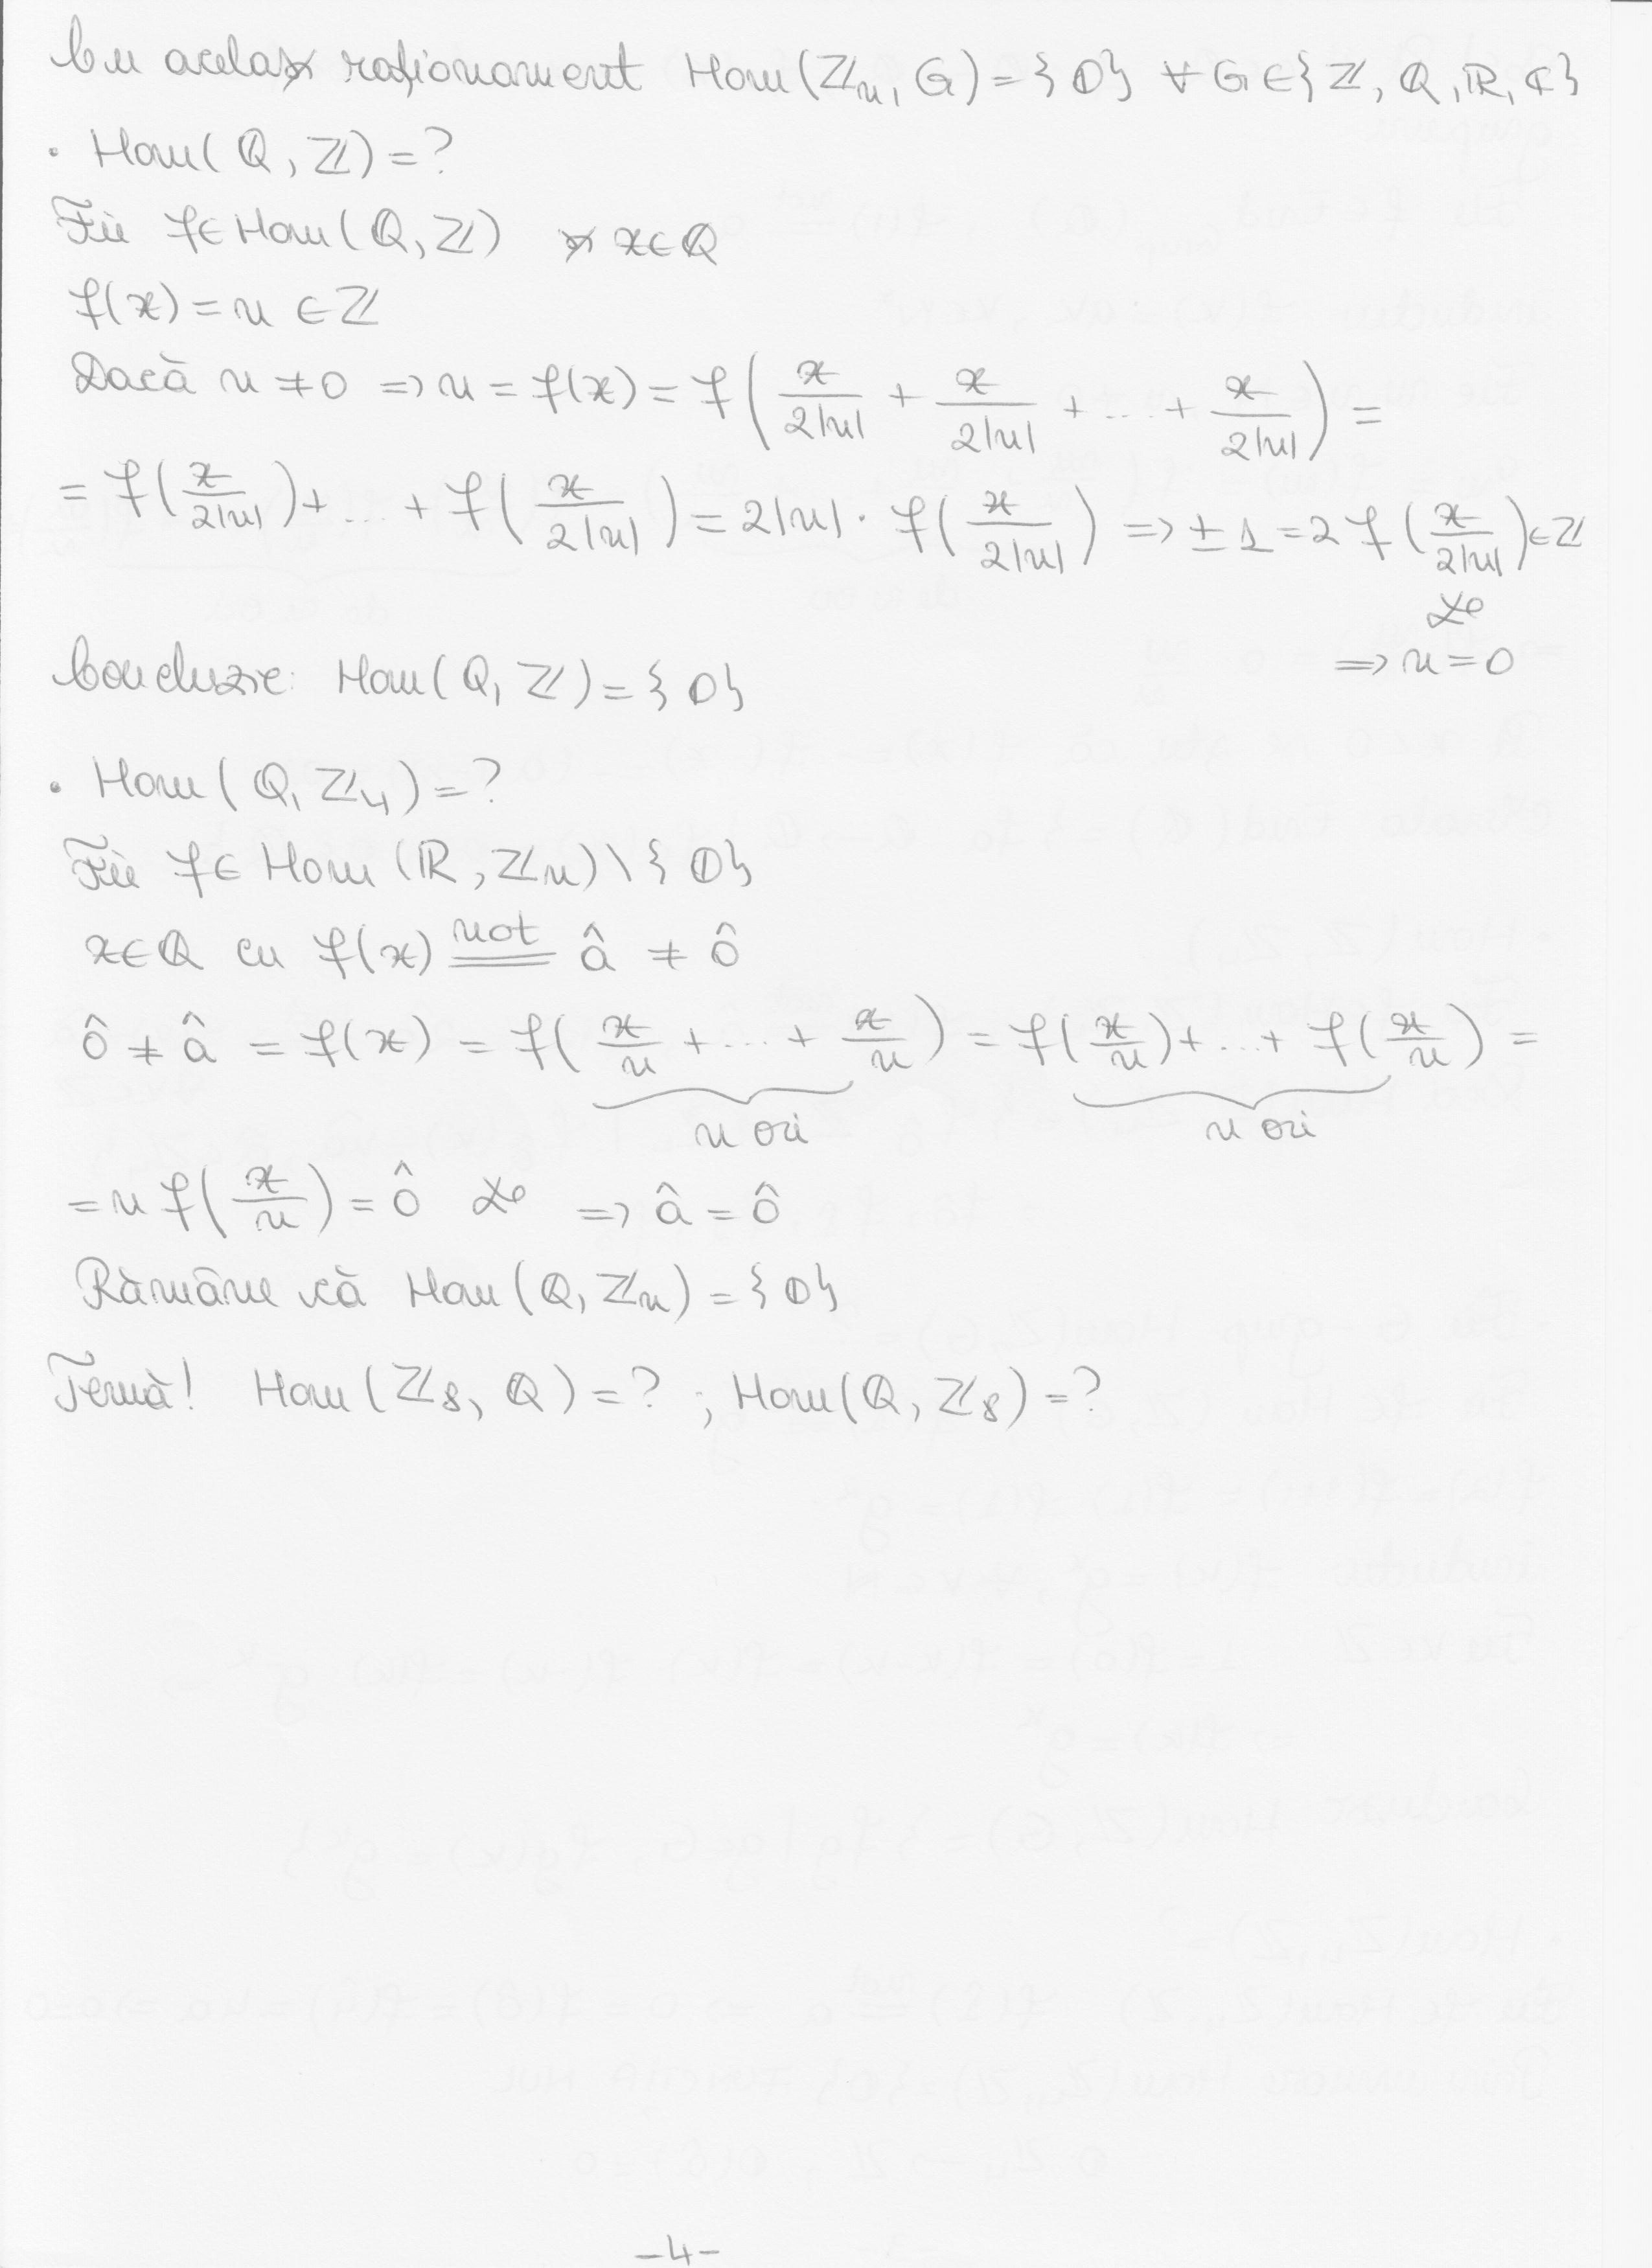 Cu același raționament Hom(ℤₙ, G) = {0} ∀ G ∈ {ℤ, ℚ, ℝ, ℂ}
• Hom(ℚ, ℤ) = ?
Fie f ∈ Hom(ℚ, ℤ) și x ∈ ℚ
f(x) = n ∈ ℤ
Dacă n ≠ 0 => n = f(x) = f(x/2|n| + x/2|n| + ... + x/2|n|) =
= f(x/2|n|) + ... + f(x/2|n|) = 2|n| · f(x/2|n|) => ±1 = 2 f(x/2|n|) ∈ ℤ
=> n = 0
Concluzie: Hom(ℚ, ℤ) = {0}
• Hom(ℚ, ℤ₄) = ?
Fie f ∈ Hom(ℝ, ℤₙ) \ {0}
x ∈ ℚ cu f(x) not= â ≠ ô
ô ≠ â = f(x) = f(x/n + ... + x/n) = f(x/n) + ... + f(x/n) =
n ori n ori
= n f(x/n) = ô => â = ô
Rămâne că Hom(ℚ, ℤₙ) = {0}
Temă! Hom(ℤ₈, ℚ) = ? ; Hom(ℚ, ℤ₈) = ?
-4-